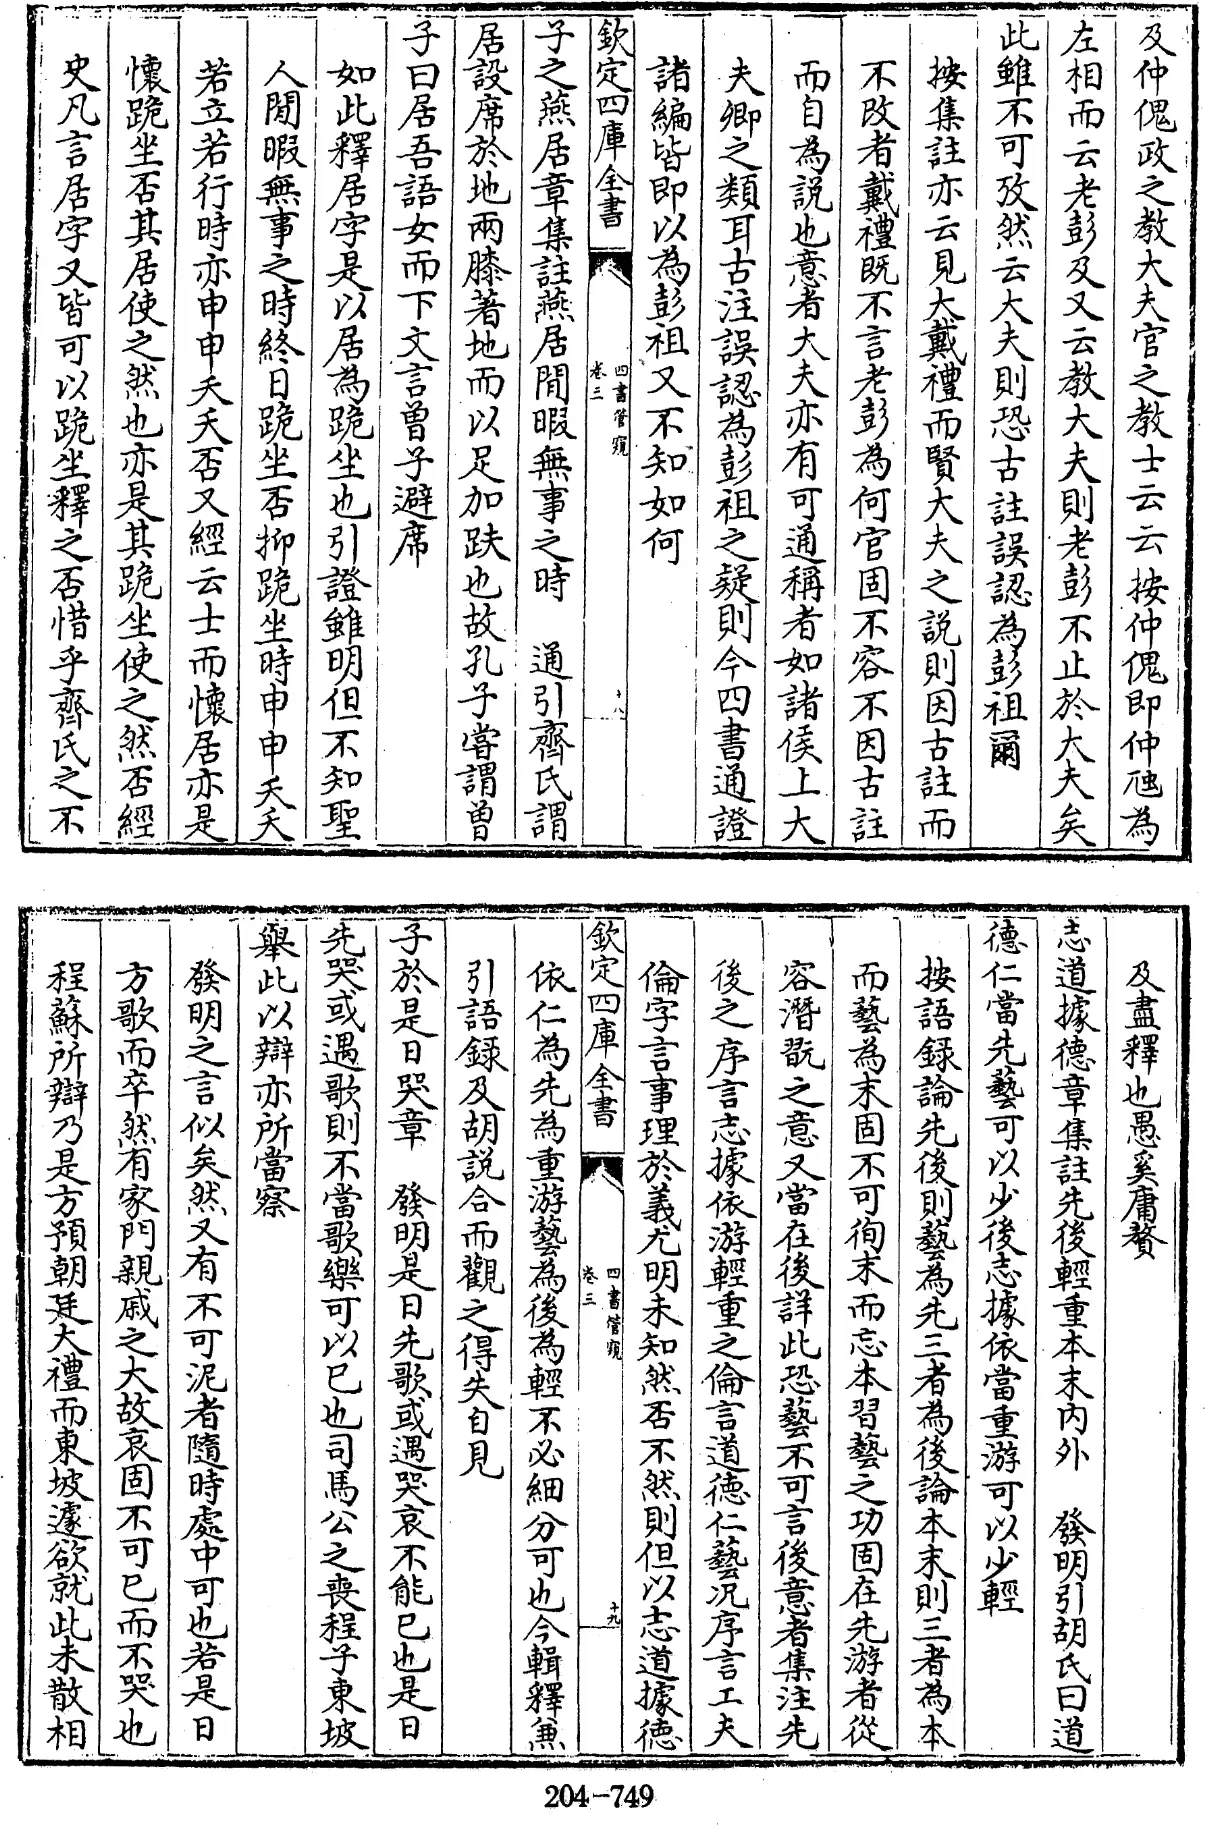 及仲傀政之教大夫官之教士云云按仲傀即仲虺為
左相而云老彭及又云教大夫則老彭不止於大夫矣
此雖不可攷然云大夫則恐古註誤認為彭祖爾
按集註亦云見大戴禮而賢大夫之說則因古註而
不改者戴禮既不言老彭為何官固不容不因古註
而自為說也意者大夫亦有可通稱者如諸侯上大
夫卿之類耳古注誤認為彭祖之疑則今四書通證
諸編皆即以為彭祖又不知如何
欽定四庫全書
四書管窺
卷三
十八
子之燕居章集註燕居閒暇無事之時 通引齊氏謂
居設席於地兩膝著地而以足加趺也故孔子嘗謂曾
子曰居吾語女而下文言曾子避席
如此釋居字是以居為跪坐也引證雖明但不知聖
人閒暇無事之時終日跪坐否抑跪坐時申申夭夭
若立若行時亦申申夭夭否又經云士而懷居亦是
懷跪坐否其居使之然也亦是其跪坐使之然否經
史凡言居字又皆可以跪坐釋之否惜乎齊氏之不
及盡釋也愚奚庸贅
志道據德章集註先後輕重本末內外 發明引胡氏曰道
德仁當先藝可以少後志據依當重游可以少輕
按語録論先後則藝為先三者為後論本末則三者為本
而藝為末固不可徇末而忘本習藝之功固在先游者從
容潛翫之意又當在後詳此恐藝不可言後意者集注先
後之序言志據依游輕重之倫言道德仁藝況序言工夫
倫字言事理於義尤明未知然否不然則但以志道據德
欽定四庫全書
四書管窺
卷三
十九
依仁為先為重游藝為後為輕不必細分可也今輯釋兼
引語録及胡説合而觀之得失自見
子於是日哭章 發明是日先歌或遇哭哀不能已也是日
先哭或遇歌則不當歌樂可以已也司馬公之喪程子東坡
舉此以辯亦所當察
發明之言似矣然又有不可泥者隨時處中可也若是日
方歌而卒然有家門親戚之大故哀固不可已而不哭也
程蘇所辯乃是方預朝廷大禮而東坡遽欲就此未散相
204-749